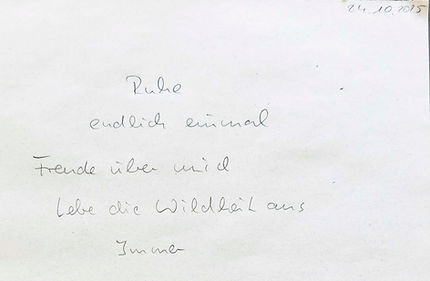 24.10.2015
Ruhe
endlich einmal
Freude über mich
Lebe die Wildheit aus
Immer